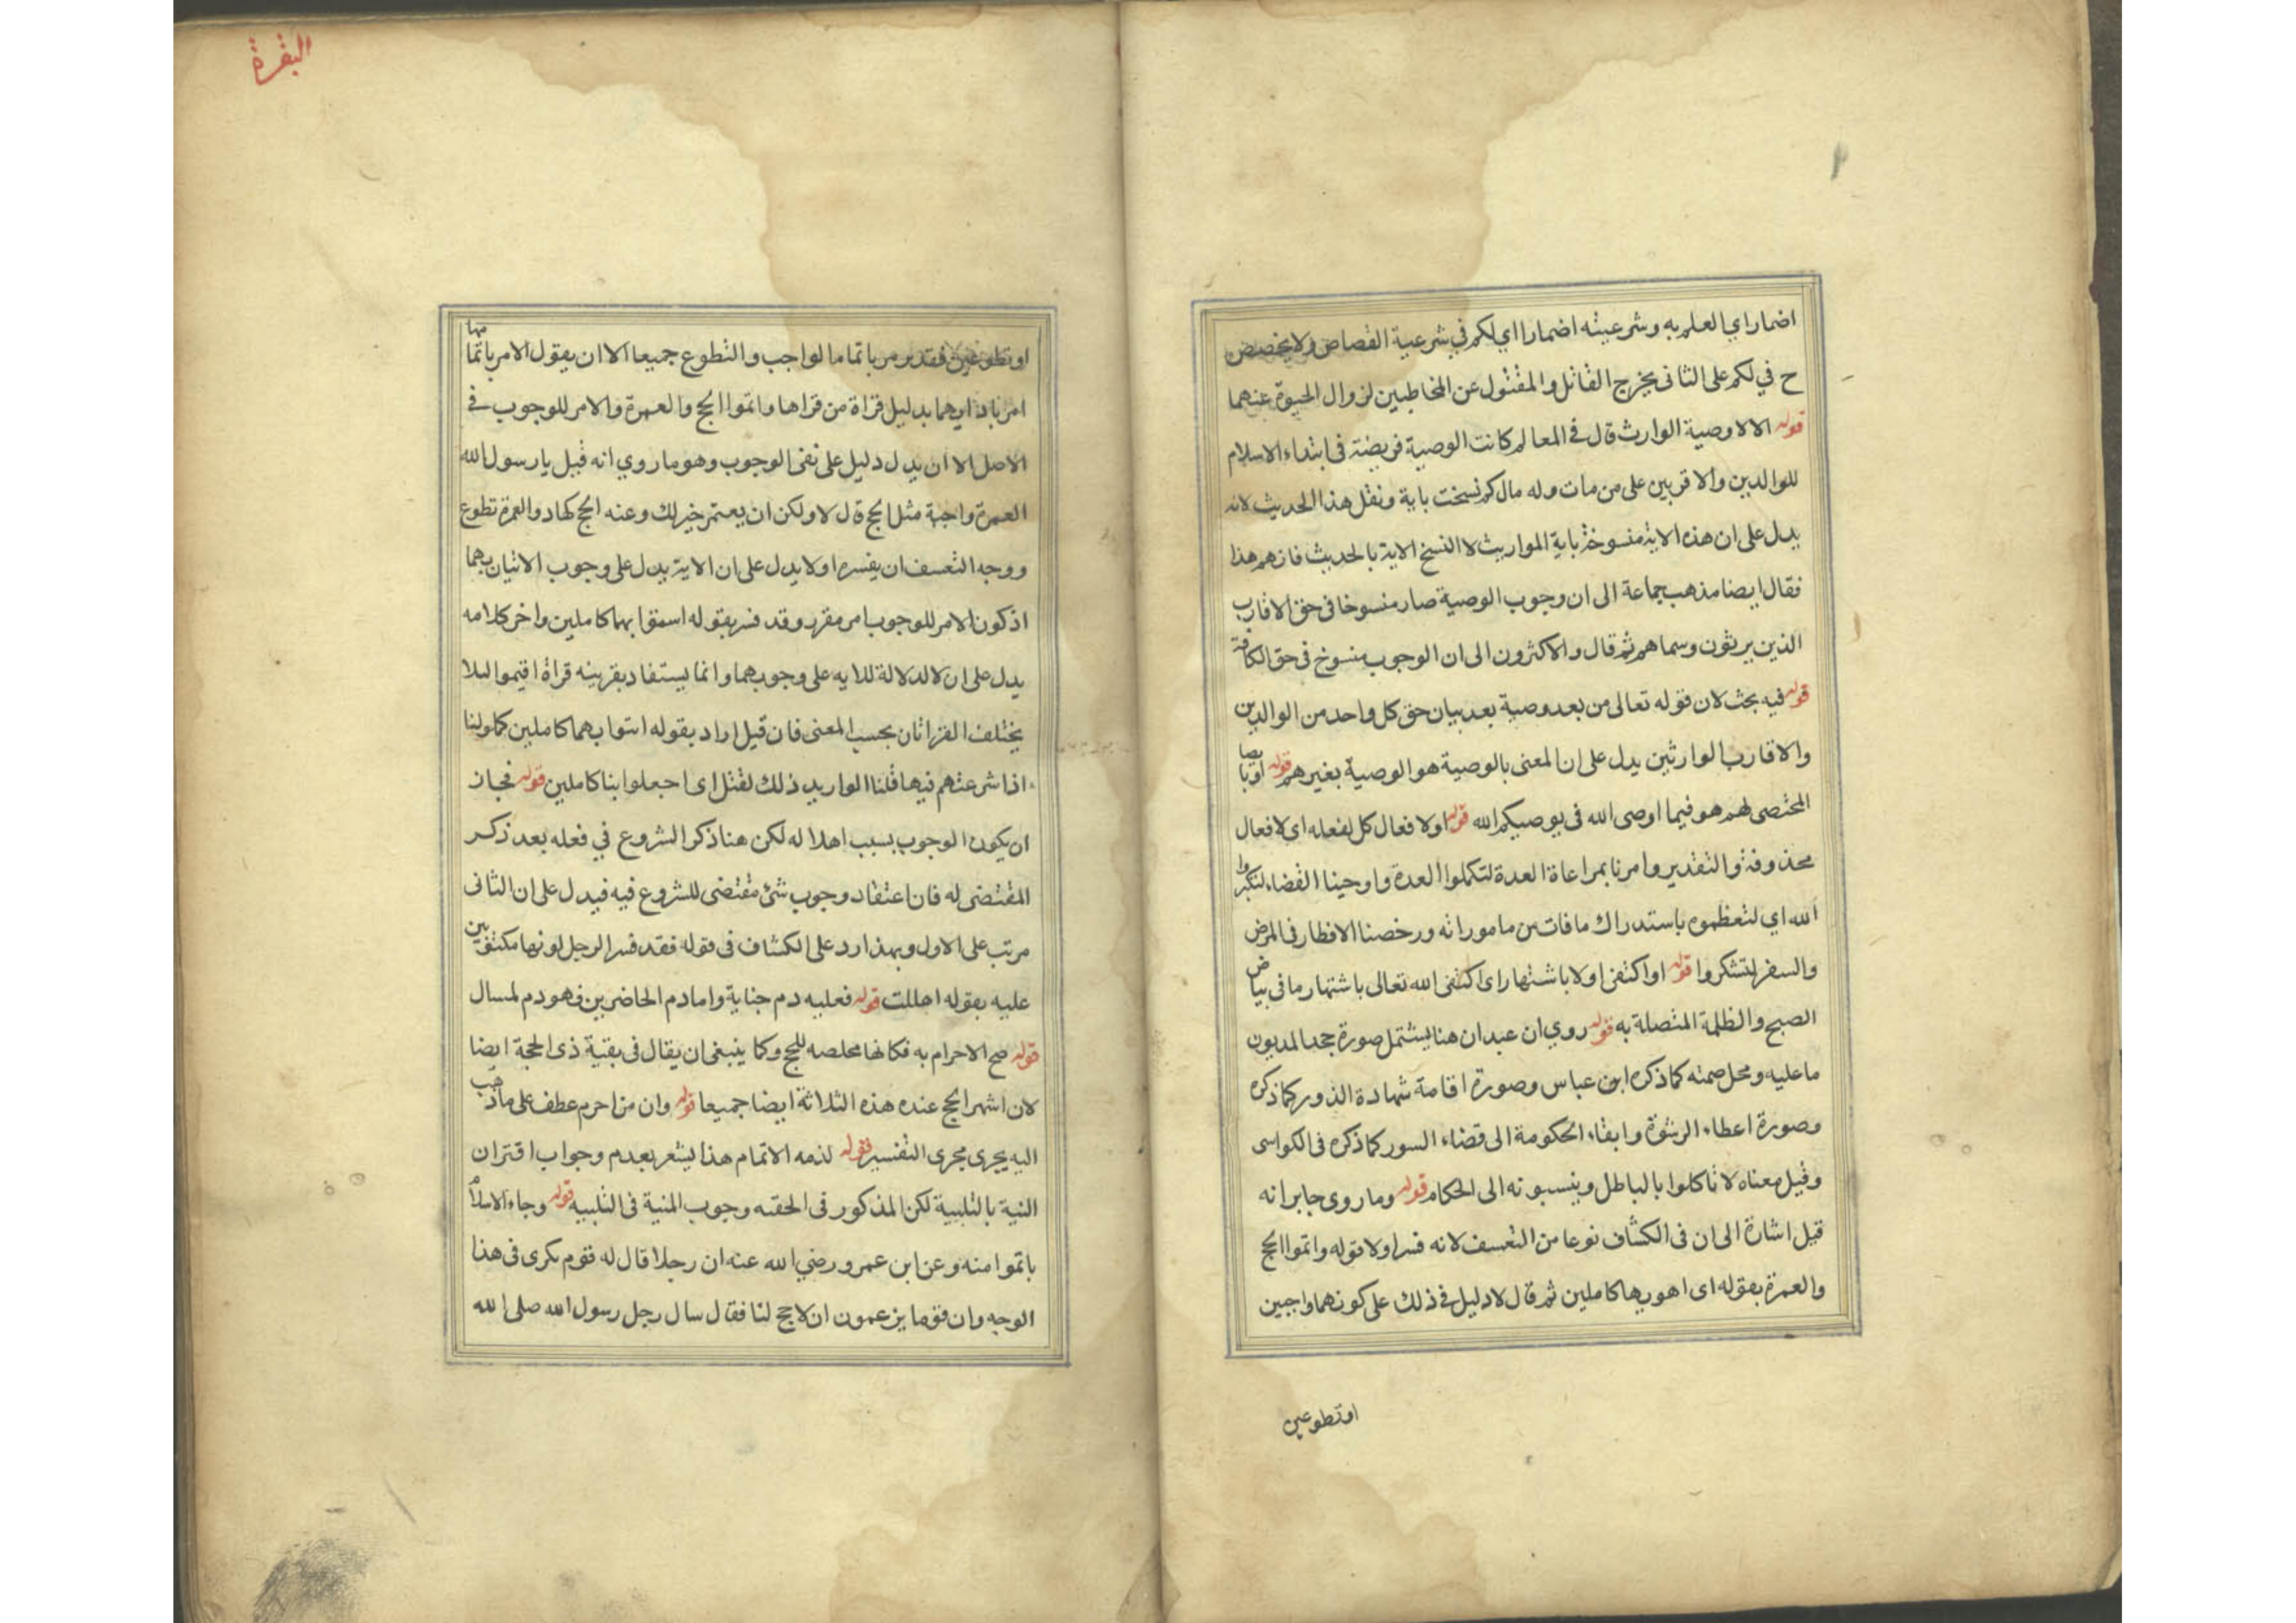 اضمار اي العلم به وشرعيته اضمارا اي لكم في شرعية القصاص ولا يخصص
ح في لكم على الثانى يخرج القاتل والمقتول عن المخاطبين لزوال الحيوة عنهما
قوله الا لا وصية الوارث قال فى المعالم كانت الوصية فريضة فى ابتداء الاسلام
للوالدين والاقربين على من مات وله مال كم نسخت باية ونقل هذا الحديث لانه
يدل على ان هذه الاية منسوخة باية المواريث لا النسخ الاية بالحديث فانهم هذا
فقال ايضا مذهب جماعة الى ان وجوب الوصية صار منسوخا فى حق الاقارب
الذين يرثون وسماهم ثم قال والاكثرون الى ان الوجوب منسوخ فى حق الكافة
قوله فيه بحث لان قوله تعالى من بعد وصية بعد بيان حق كل واحد من الوالدين
والاقارب الوارثين يدل على ان المعنى بالوصية هو الوصية بغيرهم قوله او بايصا
المختصى لهم هو فيما اوصى الله فى يوصيكم الله قوله او لافعال كل لفعله اى لافعال
محذوفة والتقدير وامرنا بمراعاة العدة لتكملوا العدة واوحينا القضاء لتكبروا
الله اي لتعظموه باستدراك ما فات من ماموراته ورخصنا الافطار فى المرض
والسفر لتشكروا قوله او اكتفى اولا باشتهار اى اكتفى الله تعالى باشتهار ما فى بياض
الصبح والظلمة المتصلة به قوله روي ان عبدان هنا يشتمل صورة جحد المديون
ما عليه ومحل صمته كما ذكره ابن عباس وصورة اقامة شهادة الذور كما ذكره
وصورة اعطاء الرشوة وابقاء الحكومة الى قضاء السور كما ذكره فى الكواسى
وقيل معناه لا تاكلوا بالباطل وينسبونه الى الحكام قوله وما روى جابر انه
قيل اشارة الى ان فى الكشاف نوعا من التعسف لانه فسر اولا قوله واتموا الحج
والعمرة بقوله اى اهوبها كاملين ثم قال لا دليل فى ذلك على كونهما واجبين
او تطوعين
البقرة
او تطوعين فقد يرمر باتمام الواجب والتطوع جميعا الا ان يقول الامر باتمامها
امر باداوهما بدليل قراة من قراها واتموا الحج والعمرة والامر للوجوب فى
الاصل الا ان يدل دليل على نفى الوجوب وهو ما روي انه قيل يا رسول الله
العمرة واجبة مثل الحج قال لا ولكن ان يعتمر خير لك وعنه الحج كهاد والعمرة تطوع
ووجه التعسف ان يفسره اولا يدل على ان الاية يدل على وجوب الاتيان بهما
اذ كون الامر للوجوب امر مقرر وقد فسر بقوله اسمقوا بهما كاملين واخر كلامه
يدل على ان لا لدلالة للايه على وجوبهما وانما يستفاد بقرينه قراة اقيموا لىلا
يختلف القراتان بحسب المعنى فان قيل اراد بقوله ايتوا بهما كاملين كما ولينا
اذا شرعتهم فيها قلنا الوار يد ذلك لقتل اى اجعلوا بنا كاملين قوله فجاز
ان يكون الوجوب بسبب اهلا له لكن هنا ذكر الشروع في فعله بعد ذكر
المقتضى له فان اعتقاد وجوب شئ مقتضى للشروع فيه فيدل على ان الثانى
مرتب على الاول وبهذا رد على الكشاف فى قوله فقد فسر الرجل لونها مكتفيين
عليه بقوله اهللت قوله فعليه دم جناية واما دم الحاضرين فهو دم لمسال
قوله صح الاحرام به فكانها مخلصه للحج وكما ينبغى ان يقال فى بقية ذى الحجة ايضا
لان اشهر الحج عنده هذه الثلاثة ايضا جميعا قوله وان من احرم عطف على ما ذهب
اليه يجرى مجرى التفسير قوله لذمه الاتمام هذا يشعر بعدم وجواب اقتران
النية بالتلبية لكن المذكور فى الحقنه وجوب المنية فى التلبيه قوله وجاء الاسلام
باتموا منه وعن ابن عمرو رضي الله عنه ان رجلا قال له قوم نكرى فى هذا
الوجه وان قوما يزعمون ان لا حج لنا فقال سال رجل رسول الله صلى الله